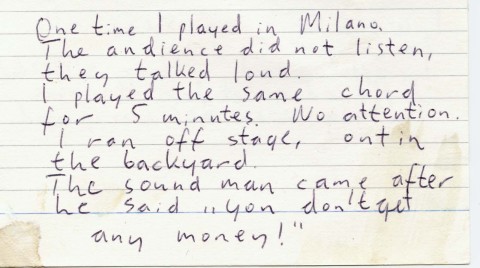 One time I played in Milano.
The audience did not listen,
they talked loud.
I played the same chord
for 5 minutes. No attention.
I ran off stage, out in
the backyard.
The sound man came after
he said „you don't get
any money!"